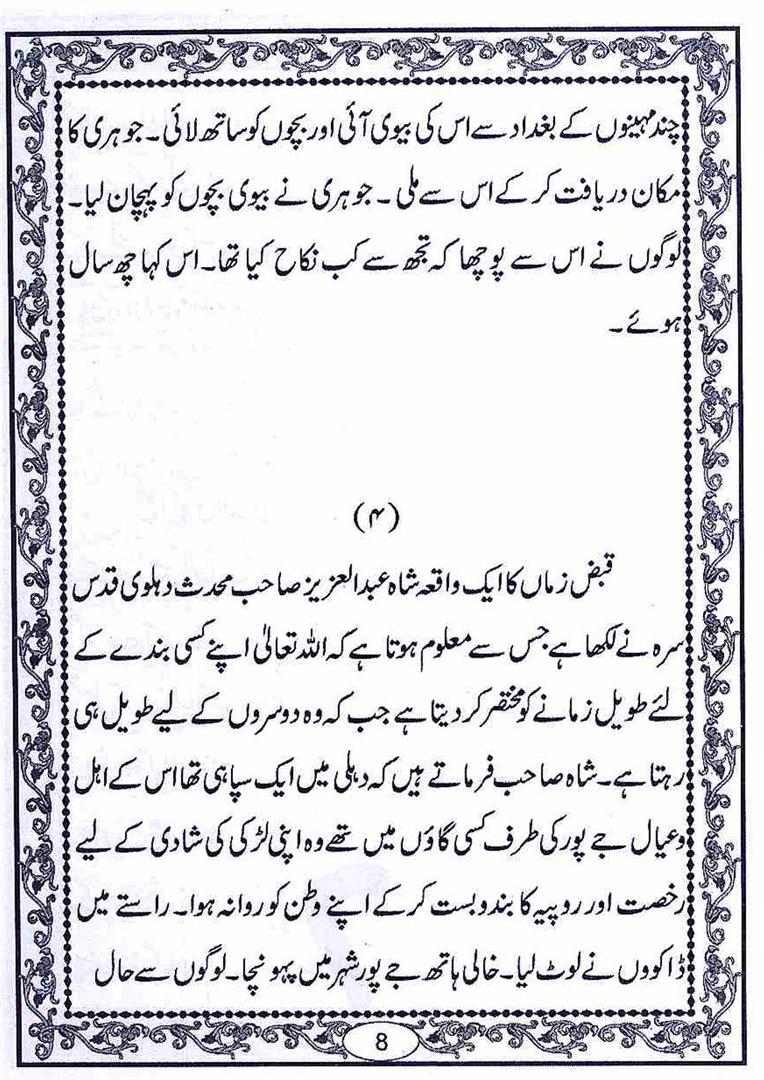 چند مہینوں کے بغداد سے اس کی بیوی آئی اور بچوں کو ساتھ لائی۔ جوہری کا
مکان دریافت کر کے اس سے ملی ۔ جوہری نے بیوی بچوں کو پہچان لیا۔
لوگوں نے اس سے پوچھا کہ تجھ سے کب نکاح کیا تھا۔ اس کہا چھ سال
ہوئے ۔
(۴)
قبض زماں کا ایک واقعہ شاہ عبدالعزیز صاحب محدث دہلوی قدس
سرہ نے لکھا ہے جس سے معلوم ہوتا ہے کہ اللہ تعالیٰ اپنے کسی بندے کے
لئے طویل زمانے کو مختصر کر دیتا ہے جب کہ وہ دوسروں کے لیے طویل ہی
رہتا ہے۔ شاہ صاحب فرماتے ہیں کہ دہلی میں ایک سپاہی تھا اس کے اہل
وعیال جے پور کی طرف کسی گاؤں میں تھے وہ اپنی لڑکی کی شادی کے لیے
رخصت اور روپیہ کا بندوبست کر کے اپنے وطن کو روانہ ہوا۔ راستے میں
ڈاکووں نے لوٹ لیا۔ خالی ہاتھ جے پور شہر میں پہونچا۔ لوگوں سے حال
8